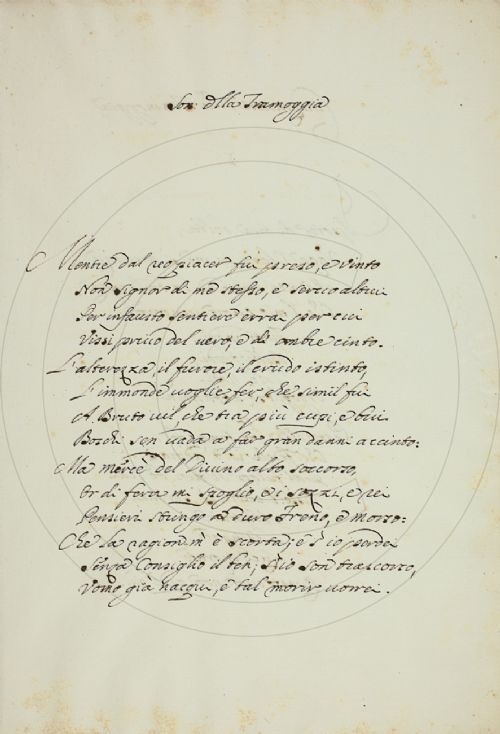 Son. della Tramoggia
Mentre dal reo piacer fui preso, e vinto
Non Signor di me stesso, e servo altrui
Per infausto sentiero errai per cui
Vissi privo del vero, e di ombre cinto.
L'alterezza, il furore, il crudo istinto,
L'immonde voglie fer, che simil fui
A Bruto vil, che tra più cupi, e bui
Boschi sen vada a far gran danni accinto:
Ma mercè del Divino alto soccorso,
Or di fera mi spoglio, e i sozzi, e rei
Pensieri stringo a duro freno, e morso:
Che la ragion m'è scorta; e s'io perdei
Senza Consiglio il ben; s'io son trascorso,
Uomo già nacqui, e tal morir vorrei.